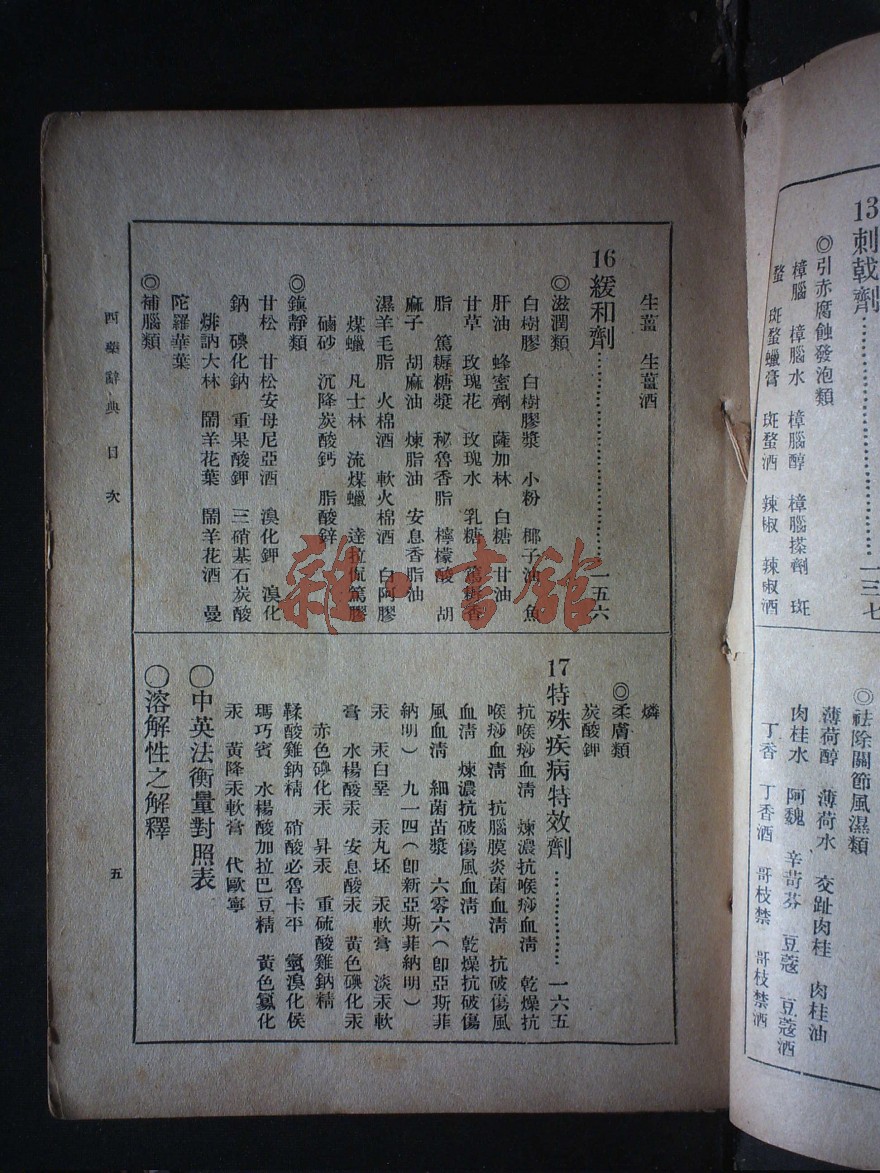 13刺戟劑……一三七
◎引赤腐蝕發泡類
樟腦　樟腦水　樟腦醇　樟腦搽劑　斑
蝥　斑蝥蠟膏　斑蝥酒　辣椒　辣椒酒
◎祛除關節風濕類
薄荷醇　薄荷水　交趾肉桂　肉桂油
肉桂水　阿魏　辛苛芬　豆蔻　豆蔻酒
丁香　丁香酒　哥枝禁　哥枝禁酒
生薑　生薑酒
16緩和劑……一五六
◎滋潤類
白樹膠　白樹膠漿　小粉　椰子油　魚
肝油　蜂蜜劑　薩加林　白糖　甘油
甘草　玫瑰花　玫瑰水　乳糖　篤耨香
脂　篤耨糖漿　秘魯香脂　檸檬酸　胡
麻子　胡麻油　煉脂油　安息香脂油
濕羊毛脂　火棉酒　軟火棉酒　白阿膠
煤蠟　凡士林　流煤蠟　達拉伽篤膠
硇砂　沉降炭酸鈣　脂酸鋅
◎鎭靜類
甘松　甘松安母尼亞酒　溴化鉀　溴化
鈉　碘化鈉　重果酸鉀　三硝基石炭酸
緋訥大林　鬧羊花葉　鬧羊花酒　曼
陀羅華葉
◎補腦類
燐
◎柔膚類
炭酸鉀
17特殊疾病特效劑……一六五
抗喉痧血淸　煉濃抗喉痧血淸　乾燥抗
喉痧血淸　抗腦膜炎菌血淸　抗破傷風
血淸　煉濃抗破傷風血淸　乾燥抗破傷
風血淸　細菌苗漿　六零六(卽亞斯菲
納明)　九一四(卽新亞斯菲納明)
汞　汞白堊　汞丸坯　汞軟膏　淡汞軟
膏　水楊酸汞　安息酸汞　黃色碘化汞
赤色碘化汞　昇汞　重硫酸雞鈉精
鞣酸雞鈉精　硝酸必魯卡平　氫溴化侯
瑪巧賓　水楊酸加拉巴豆精　黃色氯化
汞　黃降汞軟膏　代歐寧
○中英法衡量對照表
○溶解性之解釋
西藥辭典　目次
五
雜·書館